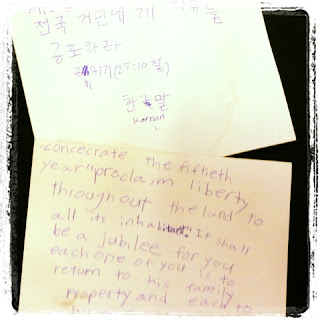 전국 거민에게 자유를
공포하라
레위기(25:10절)
한국말
Korean
concecrate the fiftieth
year "proclaim liberty
throughout the land to
all its inhabitant" It shall
be a jubilee for you
each one of you is to
return to his family
property and each to